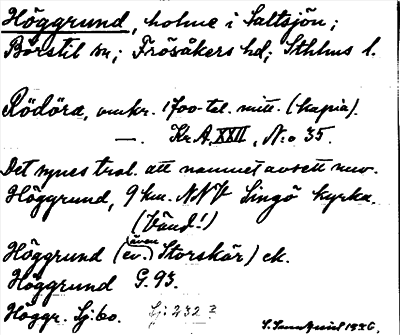 Höggrund, holme i Saltsjön;
Börstil sn; Frösåkers hd; Sthlms l.
Rödöra, omkr. 1700-tal. mitt. (kopia).
—. Kr. A. XXII, N:o 35.
Det synes trol. att namnet avsett nuv.
Höggrund, 9 km. NNV Singö kyrka.
(Vänd!)
Höggrund (ev. även Storskär) ek.
Höggrund G. 93.
Höggr. Sj: 60. Sj: 232 ?